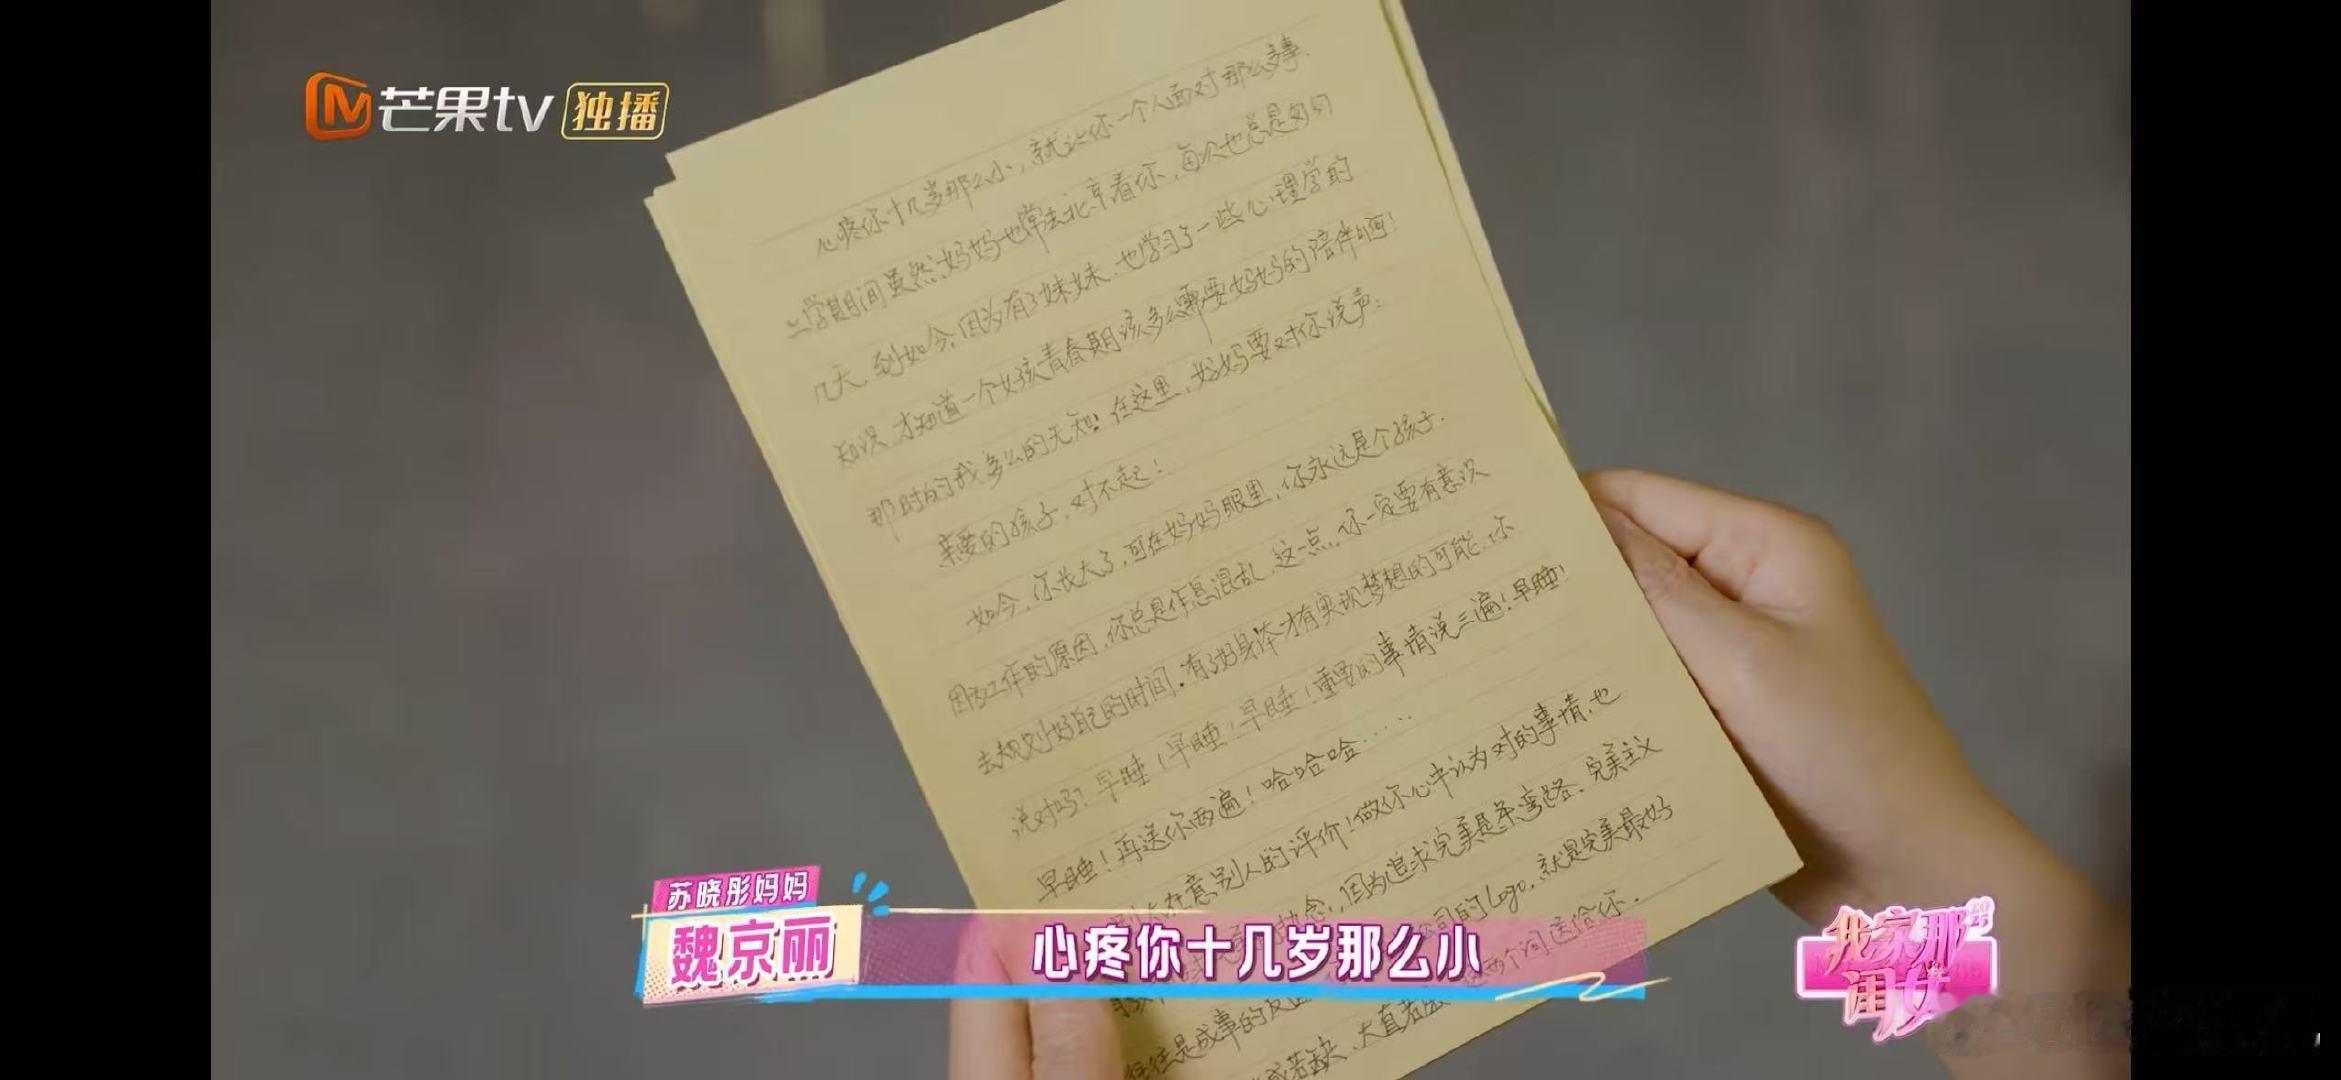 芒果tv 独播
心疼你十几岁那么小，就让你一个人面对那么多事.
上学期间虽然妈妈也常去北京看你，每次也总是匆匆
几天，到如今，因为有了妹妹，也学习了一些心理学的
知识 才知道一个女孩青春期该多么需要妈妈的陪伴啊！
那时的我多么的无知！在这里，妈妈要对你说声：
亲爱的孩子，对不起！
如今，你长大了，可在妈妈眼里，你永远是个孩子.
因为工作的原因，你总是作息混乱，这一点，你一定要有意识
去规划好自己的时间，有了好身体才有实现梦想的可能，你
说对吗？早睡！早睡！早睡！重要的事情说三遍！早睡！
早睡！再送你两遍！哈哈哈……
太在意别人的评价！做你心中认为对的事情，也
执念，因为追求完美是条弯路，完美主义
公司的Logo，就是完美最好
两个词送给你.
往往是成事的反面
成若缺、大直若
苏晓彤妈妈
魏京丽
心疼你十几岁那么小
我家那闺女2025